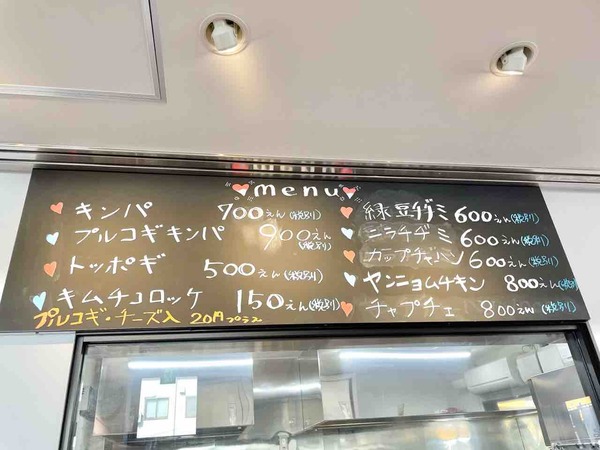 menu
キンパ 700えん(税別)
プルコギキンパ 900えん(税別)
トッポギ 500えん(税別)
キムチコロッケ 150えん(税別)
プルコギ・チーズ入 20円プラス
緑豆チヂミ 600えん(税別)
ニラチヂミ 600えん(税別)
カップチャパン 600えん(税別)
ヤンニョムチキン 800えん(税別)
チャプチェ 800えん(税別)